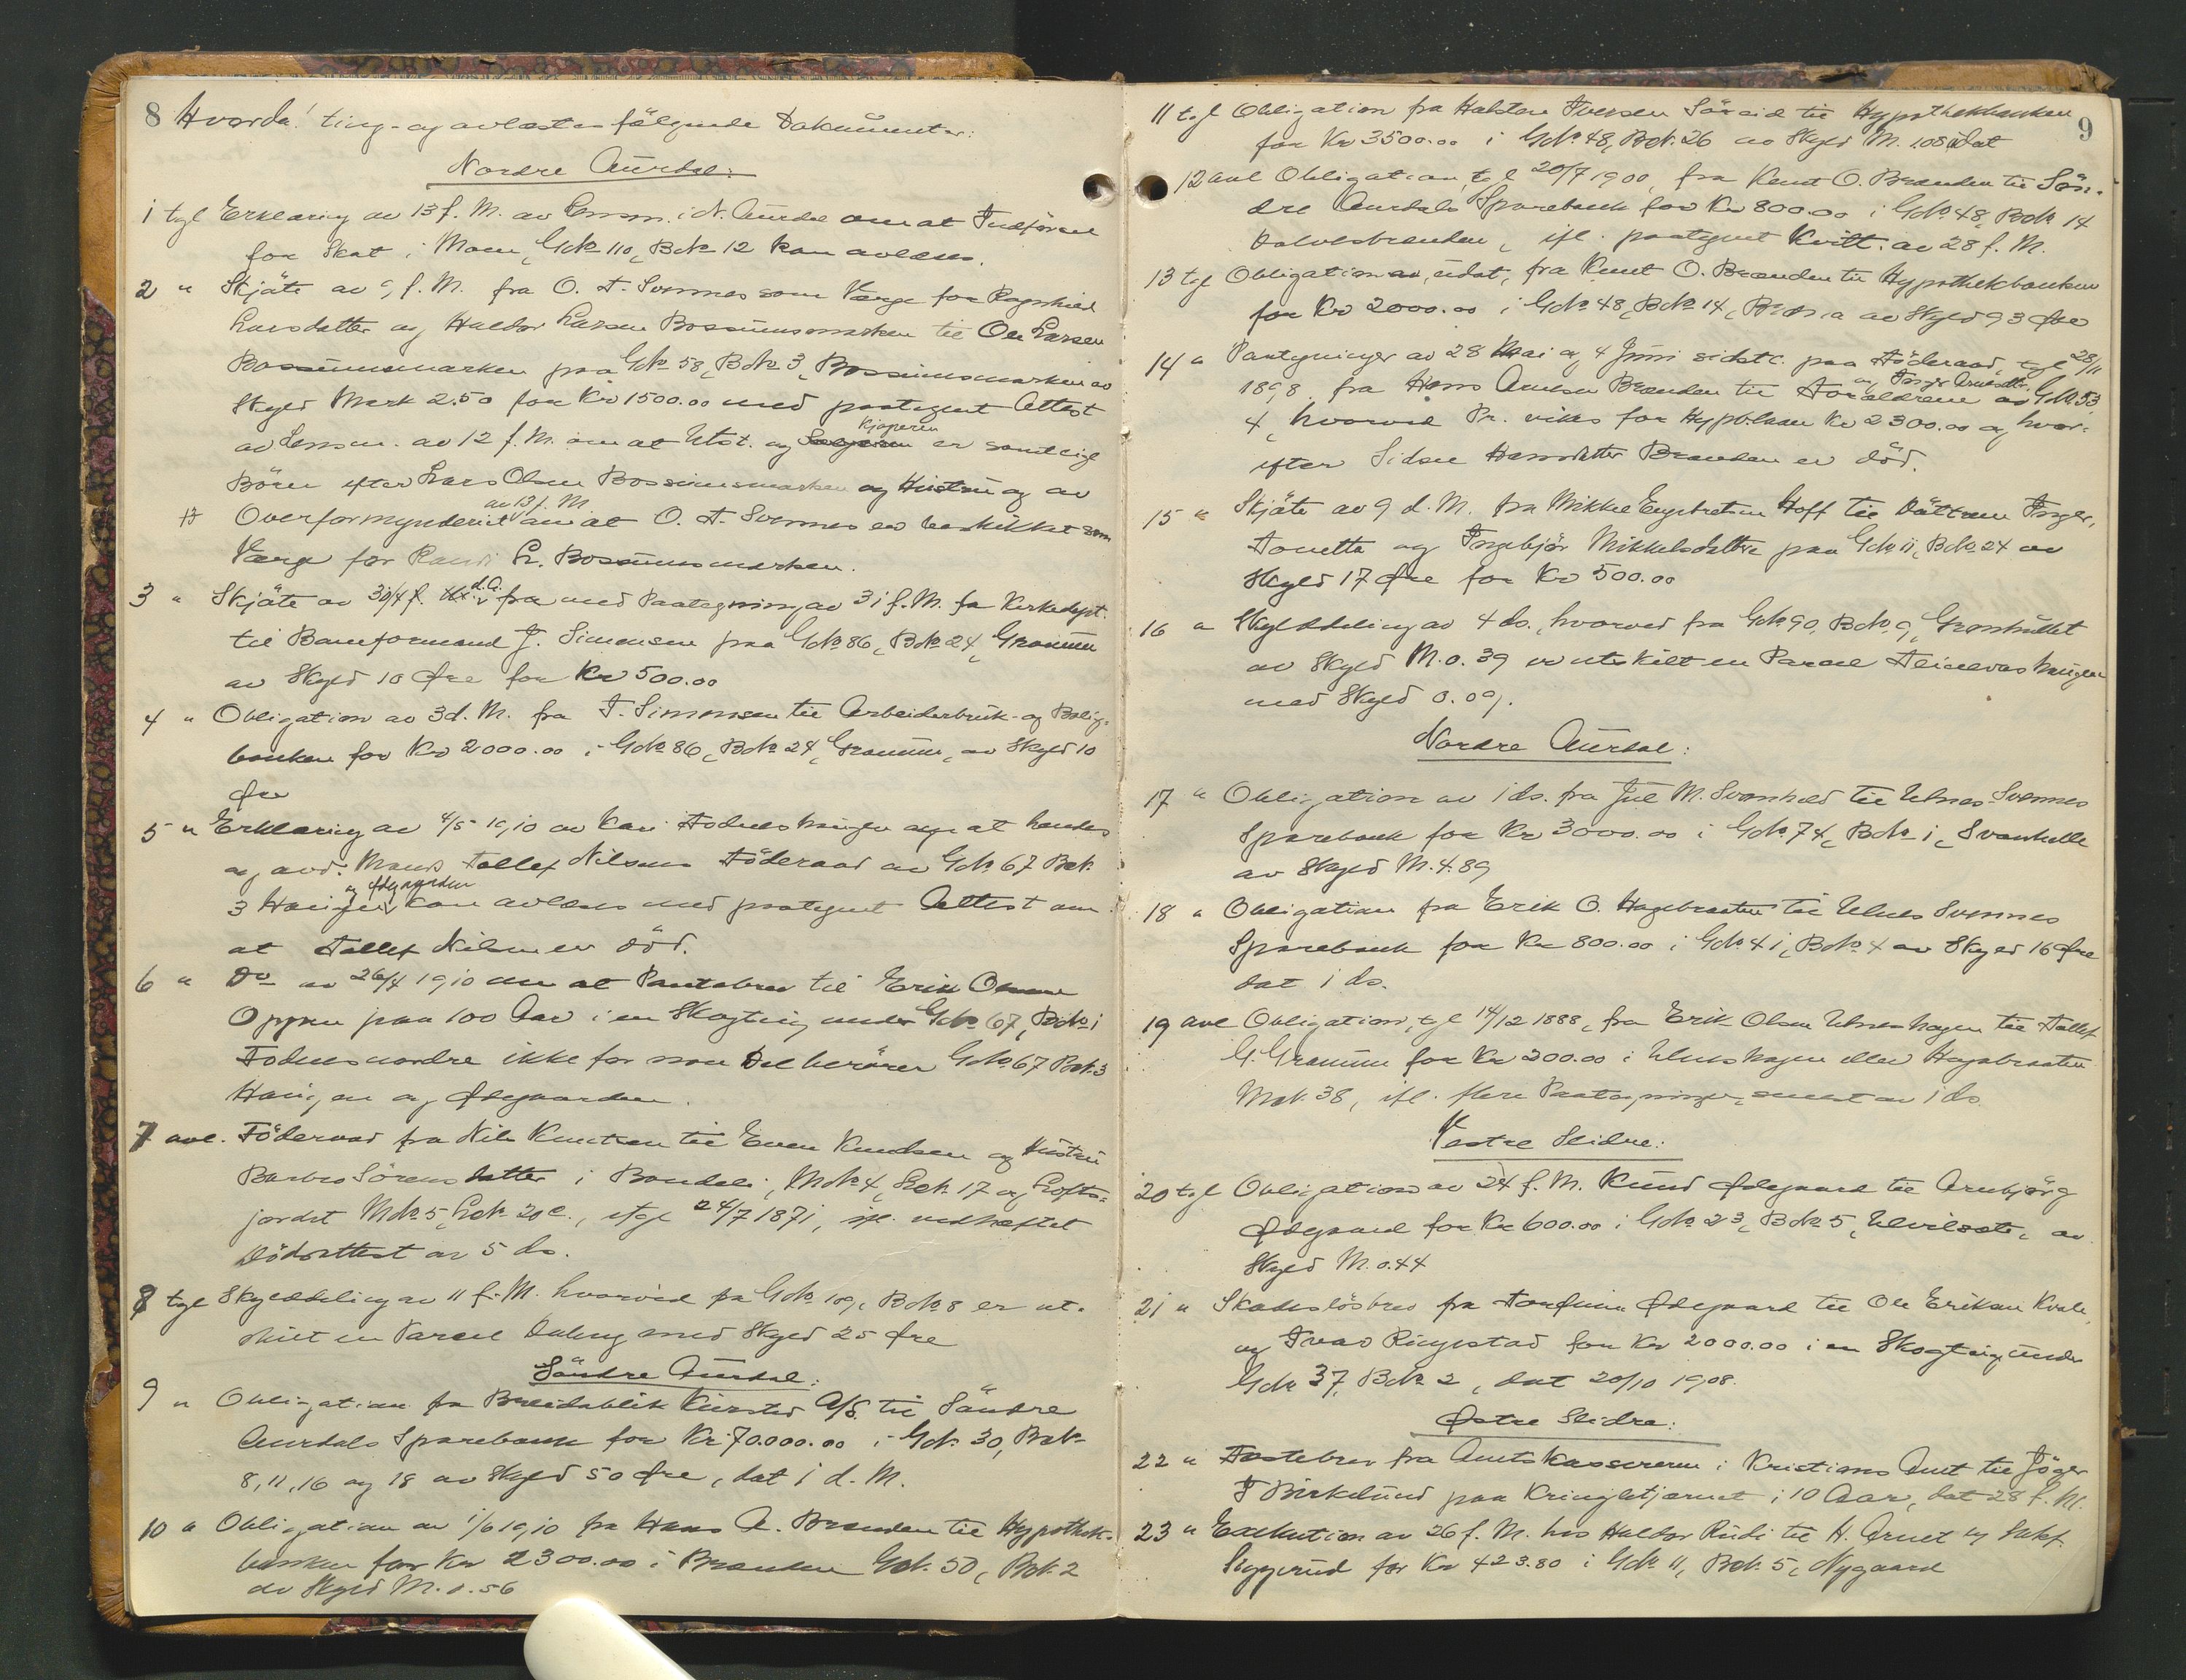 8 Hvorda! ting- og avlæstes følgende Dokumenter:
Nordre Aurdal:
1 tgl Erklæring av 13 f. M. av Lensm. i N. Aurdal om at Indførsel
for Skat i Moen, Gdn 110, Bdn 12 kan avlæses.
2 " Skjöte av 9 f. M. fra O. T. Svennes som Værge for Ragnhild
Larsdatter og Haldor Larsen Bossumsmarken til Ole Larsen
Bossumsmarken paa Gdn 58, Bdn 3, Bossumsmarken av
Skyld Mark 2.50 for Kr 1500.00 med paategnet Attest
kjøperen
av Lensm. av 12 f. M. om at Utst. og er samtlige
Börn efter Lars Olsen Bossumsmarken og Hustru og av
av 13 f. M
Overformynderiet om at O. T. Svennes er beskikket som
Værge for L. Bossumsmarken.
3 " Skjöte av 30/4 f. d.A. fra med Paategning av 31 f. M. fra Kirkedept.
til Baneformand J. Simensen paa Gdn 86, Bdn 24, Granum
av Skyld 10 Øre for Kr 500.00
4 " Obligation av 3 d. M. fra J. Simonsen til Arbeiderbruk- og Bolig-
banken for Kr 2000.00 i Gdn 86, Bdn 24, Granum, av Skyld 10
Øre
5 " Erklæring av 4/5 1910 av Kari Fodneshaugen om at hendes
og avd. Mands Tollef Nilsens Föderaad av Gdn 67 Bdn.
og Ødegaarden
3 Haugen kan avlæses med paategnet Attest om
at Tollef Nilsen er död.
6 " Do av 26/4 1910 om at Pantebrev til Erik Olsen
Oppen paa 100 Aar i en Skogteig under Gdn 67, Bdn 1
Fodnes nordre ikke for noen Del berører Gdn. 67 Bdn. 3
Haugen og Ødegaarden.
7 avl. Föderaad fra Nils Knutsen til Even Knudsen og Hustru
Barbro Sörensdatter i Brudeli, Mdn 4, Ldn. 17 og Lofts-
jordet Mdn 5, Ldn. 20c., tgl 24/7 1871, ifl. vedhæftet
Dödsattest av 5 ds.
8 tgl Skylddeling av 11 f. M. hvorved fra Gdn 109, Bdn 8 er ut-
skilt en Parcel med Skyld 25 Øre
Söndre Aurdal:
9 " Obligation fra Breidablik Kursted A/S. til Söndre
Aurdals Sparebank for Kr. 70.000.00 i Gdn. 30, Bdn.
8, 11, 16 og 18 av Skyld 50 Øre, dat 1 d. M.
10 " Obligation av 1/6 1910 fra Hans A. Brænden til Hypothek-
banken for Kr 2300.00 i Brænden Gdn. 50, Bdn. 2
av Skyld M. 1.56
9
11 tgl Obligation fra Halsten Iversen til Hypothekbanken
for Kr 3500.00 i Gdn. 48, Bdn. 26 av Skyld M. 1.08
12 avl Obligation, tgl 20/7 1900, fra Knut O. Brænden til Sön-
dre Aurdals Sparebank for Kr 800.00 i Gdn. 48, Bdn 14
ifl. paategnet Kvitt. av 28 f. M.
13 tgl Obligation, udat, fra Knut O. Brænden til Hypothekbanken
for Kr 2000.00 i Gdn. 48, Bdn 14, av Skyld 93 Øre
14 " Paategninger av 28 Mai og 4 Juni sidstl. paa Föderaad, tgl 28/11
1898 fra Hans Arnesen Brænden til Forældrene Gdn. 53,
4, hvorved Pr. vikes for Hypb.laan Kr 2300.00 og hvor-
efter Sidsel Hansdatter Brænden er död.
15 " Skjöte av 9 d. M. fra Mikkel Engebretsen Hoff til Döttrene Inger,
Tonetta og Ingebjör Mikkelsdöttre paa Gdn 11, Bdn. 24 av
Skyld 17 Øre for Kr 500.00
16 " Skylddeling av 4 ds., hvorved fra Gdn 90, Bdn. 9, Grønhullet
av Skyld M. 0.39 er utskilt en Parcel
med Skyld 0.09.
Nordre Aurdal:
17 " Obligation av 1 ds. fra Jul M. Svanheld til Ulnes-Svennes
Sparebank for Kr 3000.00 i Gdn. 74, Bdn. 1,
av Skyld M. 4.89
18 " Obligation fra Erik O. Hagebraaten til Ulnes Svennes
Sparebank for Kr 800.00 i Gdn. 41, Bdn. 4 av Skyld 16 Øre
dat 1 ds.
19 avl Obligation, tgl 14/12 1888, fra Erik Olsen Ulneshagen til Tollef
G. Granum for Kr 200.00 i Ulneshagen eller Hagabraaten
Mdn. 38, ifl. flere Paategninger, senest av 1 ds.
Vestre Slidre:
20 tgl Obligation av 24 f. M. Knud Ødegaard til Arnbjörg
Ødegaard for Kr 600.00 i Gdn. 23, Bdn. 5, av
Skyld M. 0.44
21 " Skadeslösbrev fra Torfinn Ødegaard til Ole Eriksen Kvale
og Ivar Ringestad for Kr 2000.00 i en Skogteig under
Gdn 37, Bdn 2, dat 20/10 1908.
Østre Slidre:
22 " Festebrev fra Amtskassereren i Kristians Amt til
T Birkelund paa Kringletjernet i 10 Aar, dat 28 f. M.
23 " Exekution av 26 f. M. hos Haldor Rudi til H. Arnet og
Siggerud for Kr 423.80 i Gdn 11, Bdn. 5, Nygaard